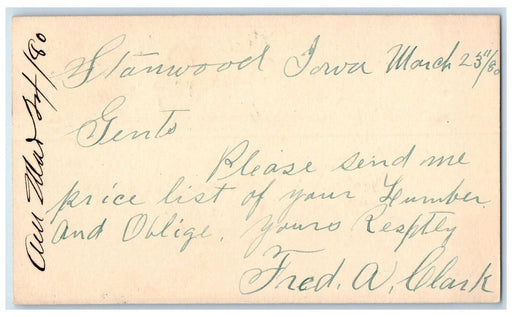 Stanwood Iowa March 23"/80
Gents
Please send me
price list of your Lumber
and Oblige. yours Resptly
Fred. A. Clark
Mar 24/80